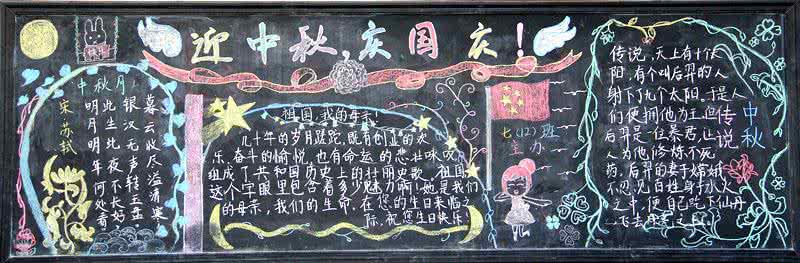 迎中秋,庆国庆!
快乐
中秋月
宋 苏轼
暮云收尽溢清寒
银汉无声转玉盘
此生此夜不长好
明月明年何处看
祖国,我的母亲!
几十年的岁月蹉跎,既有创业的欢
乐、奋斗的愉悦,也有命运的悲壮咏叹
组成了共和国历史上的壮丽史歌,祖国
这个字眼里包含着多少魅力啊!她是我们
的母亲,我们的生命,在您的生日来临之
际,祝您生日快乐
七(12)班
主办
中秋传说
传说,天上有十个太
阳,有个叫后羿的人
射下了九个太阳,于是人
们便拥他为王,但
后羿是一位暴君,让
人为他修炼不死
药,后羿的妻子嫦娥
不忍见百姓身于水火
之中,便自己吃下仙丹